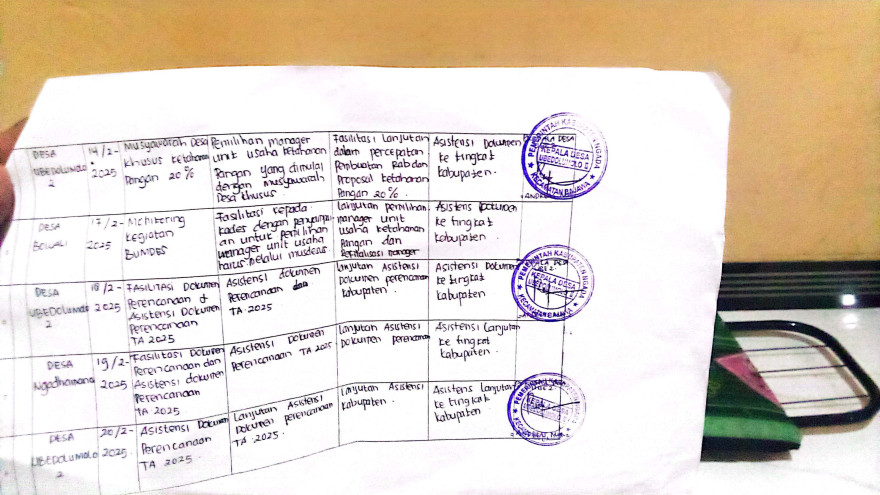 DESA
UBEDOLUMOLO
2
14/2-
2025
Musyawarah Desa
Khusus Ketahanan
Pangan 20%
Pemilihan manager
unit usaha Ketahanan
Pangan yang dimulai
dengan musyawarah
Desa Khusus.
Fasilitasi Lanjutan
dalam percepatan
Pembuatan Rab dan
Proposal Ketahanan
Pangan 20%.
Asistensi Dokumen
ke tingkat
kabupaten.
PEMERINTAH KAB NGADA
KEPALA DESA
UBEDOLUMOLO 2
KECAMATAN BAJAWA
DESA
BOWALI
17/2-
2025
Monitering
kegiatan
BUMDES
Fasilitasi kepada
kades dengan
an untuk pemilihan
manager unit usaha
harus melalui musdesus
lanjutan pemilihan
manager unit
usaha ketahanan
pangan dan
manager
Asistensi Dokumen
ke tingkat
kabupaten
DESA
UBEDOLUMOLO
2
18/2-
2025
FASILITASI Dokumen
Perencanaan &
Asistensi Dokumen
Perencanaan
TA 2025
Asistensi dokumen
Perencanaan
TA 2025
lanjutan Asistensi
Dokumen perencanaan
kabupaten.
Asistensi Dokumen
ke tingkat
kabupaten
PEMERINTAH KAB NGADA
KEPALA DESA
UBEDOLUMOLO 2
KECAMATAN BAJAWA
DESA
Ngadhamana
19/2-
2025
Fasilitasi Dokumen
Perencanaan dan
Asistensi dokumen
Perencanaan
TA 2025
Asistensi Dokumen
Perencanaan TA 2025
lanjutan Asistensi
dokumen perencanaan
Asistensi lanjutan
ke tingkat
kabupaten.
DESA
UBEDOLUMOLO
2
20/2-
2025.
Asistensi Dokumen
Perencanaan
TA 2025.
Lanjutan Asistensi
Dokumen perencanaan
TA. 2025.
lanjutan Asistensi
kabupaten.
Asistensi Lanjutan
ke tingkat
kabupaten